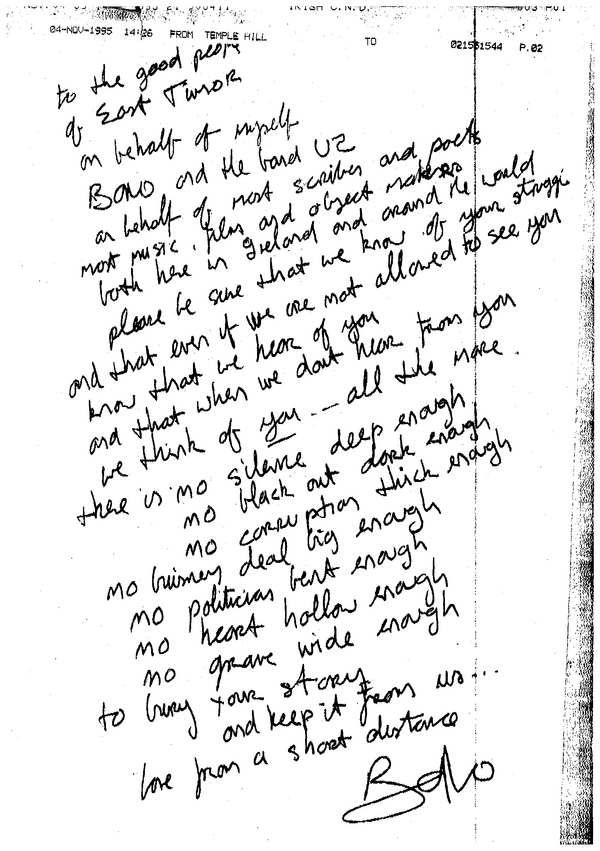 IRISH C.N.D. 003 P01
04-NOV-1995 14:26 FROM TEMPLE HILL TO 021551544 P.02
to the good people
of East Timor
on behalf of myself
BONO and the band U2
on behalf of most scribes and poets
most music, film and object makers
both here in Ireland and around the world
please be sure that we know of your struggle
and that even if we are not allowed to see you
know that we hear of you
and that when we dont hear from you
we think of you --- all the more.
there is no silence deep enough
no black out dark enough
no corruption thick enough
no business deal big enough
no politician bent enough
no heart hollow enough
no grave wide enough
to bury your story
and keep it from us...
love from a short distance
Bono